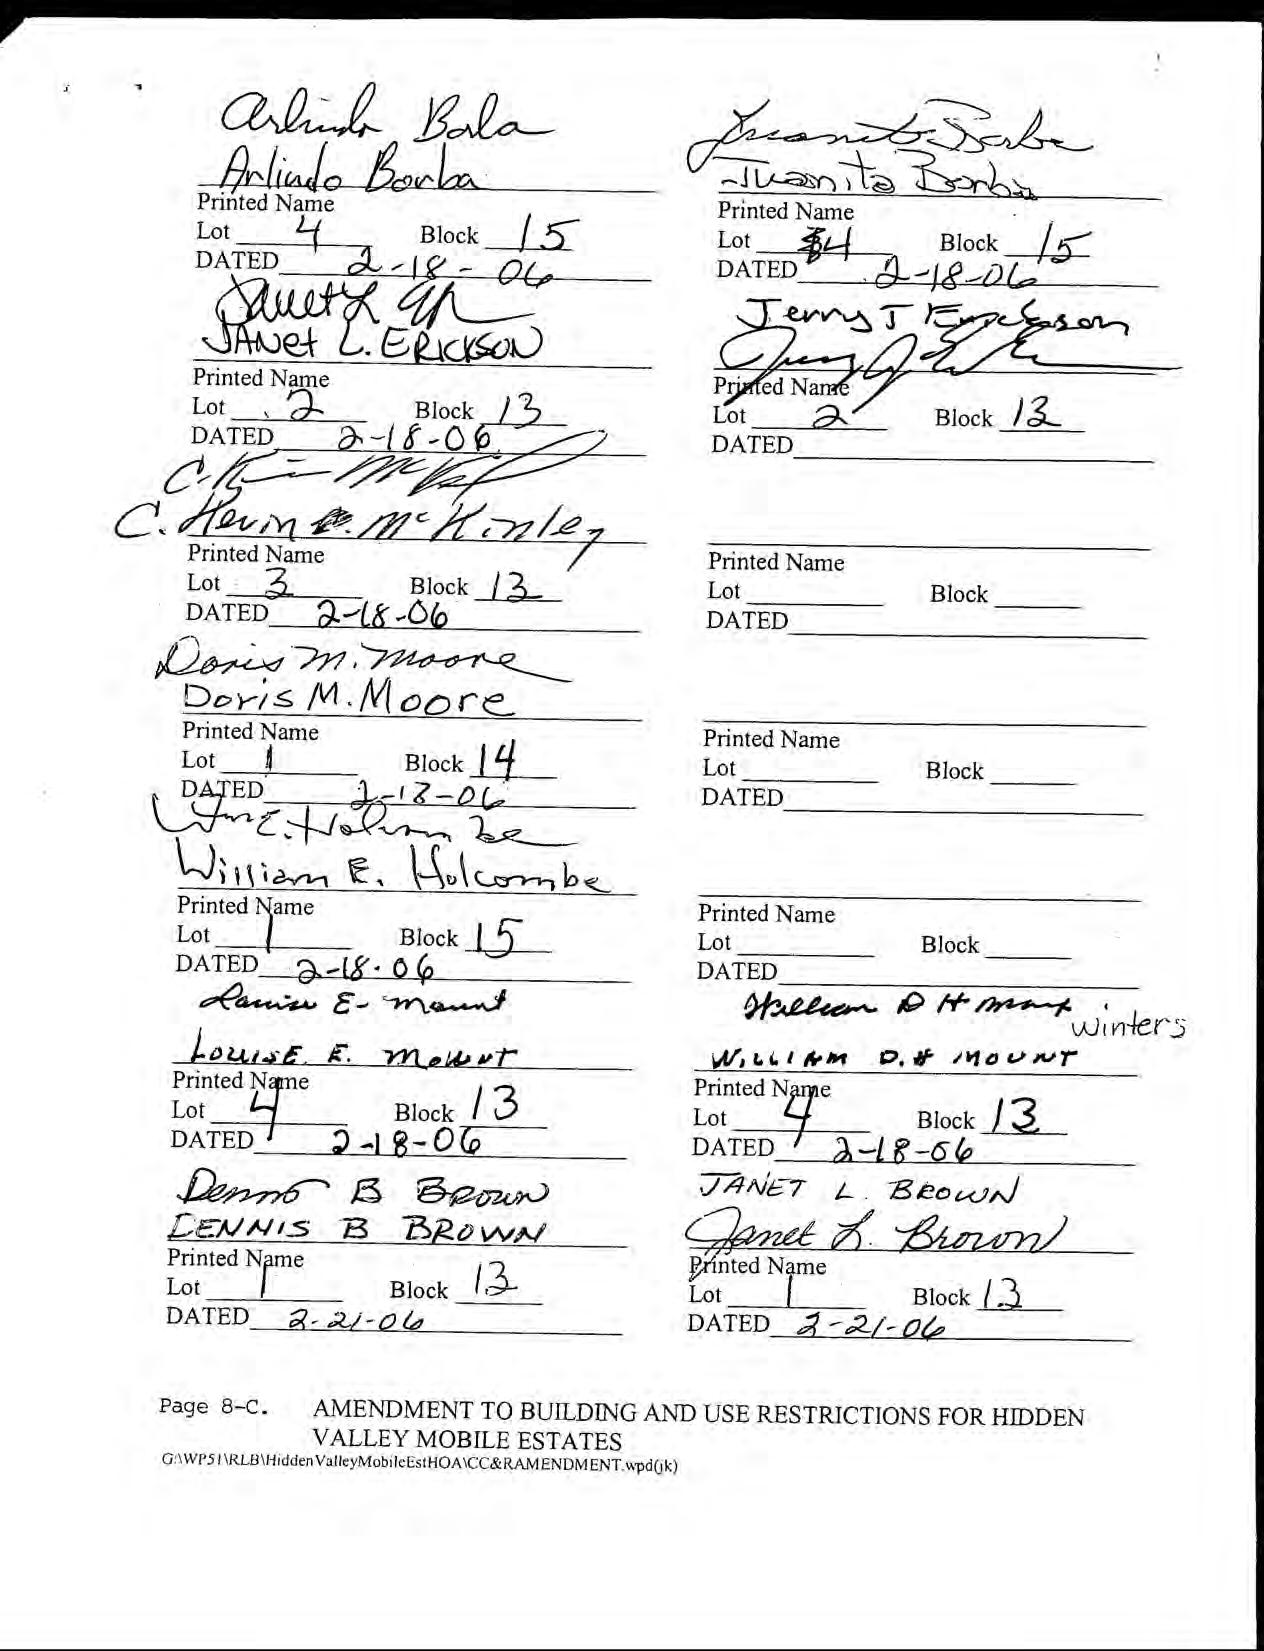 Arlindo Borba
Arlindo Borba
Printed Name
Lot 4 Block 15
DATED 2-18-06
Juanita Borba
Juanita Borba
Printed Name
Lot 4 Block 15
DATED 2-18-06
Janet L
JANet L. ERICKSON
Printed Name
Lot 2 Block 13
DATED 2-18-06
Jerry J Erickson
Printed Name
Lot 2 Block 13
DATED
C. Kevin McKinley
Printed Name
Lot 3 Block 13
DATED 2-18-06
Printed Name
Lot Block
DATED
Doris M. Moore
Doris M. Moore
Printed Name
Lot 1 Block 14
DATED 2-18-06
Printed Name
Lot Block
DATED
Wm E. Holcombe
William E. Holcombe
Printed Name
Lot 1 Block 15
DATED 2-18-06
Printed Name
Lot Block
DATED
Louise E. Mount
LOUISE E. MOUNT
Printed Name
Lot 4 Block 13
DATED 2-18-06
William D H Mount
Winters
WILLIAM D.H MOUNT
Printed Name
Lot 4 Block 13
DATED 2-18-06
Dennis B Brown
DENNIS B BROWN
Printed Name
Lot 1 Block 13
DATED 2-21-06
JANET L. BROWN
Janet L. Brown
Printed Name
Lot 1 Block 13
DATED 2-21-06
Page 8-C. AMENDMENT TO BUILDING AND USE RESTRICTIONS FOR HIDDEN
VALLEY MOBILE ESTATES
G:\WP51\RLB\HiddenValleyMobileEstHOA\CC&RAMENDMENT.wpd(jk)